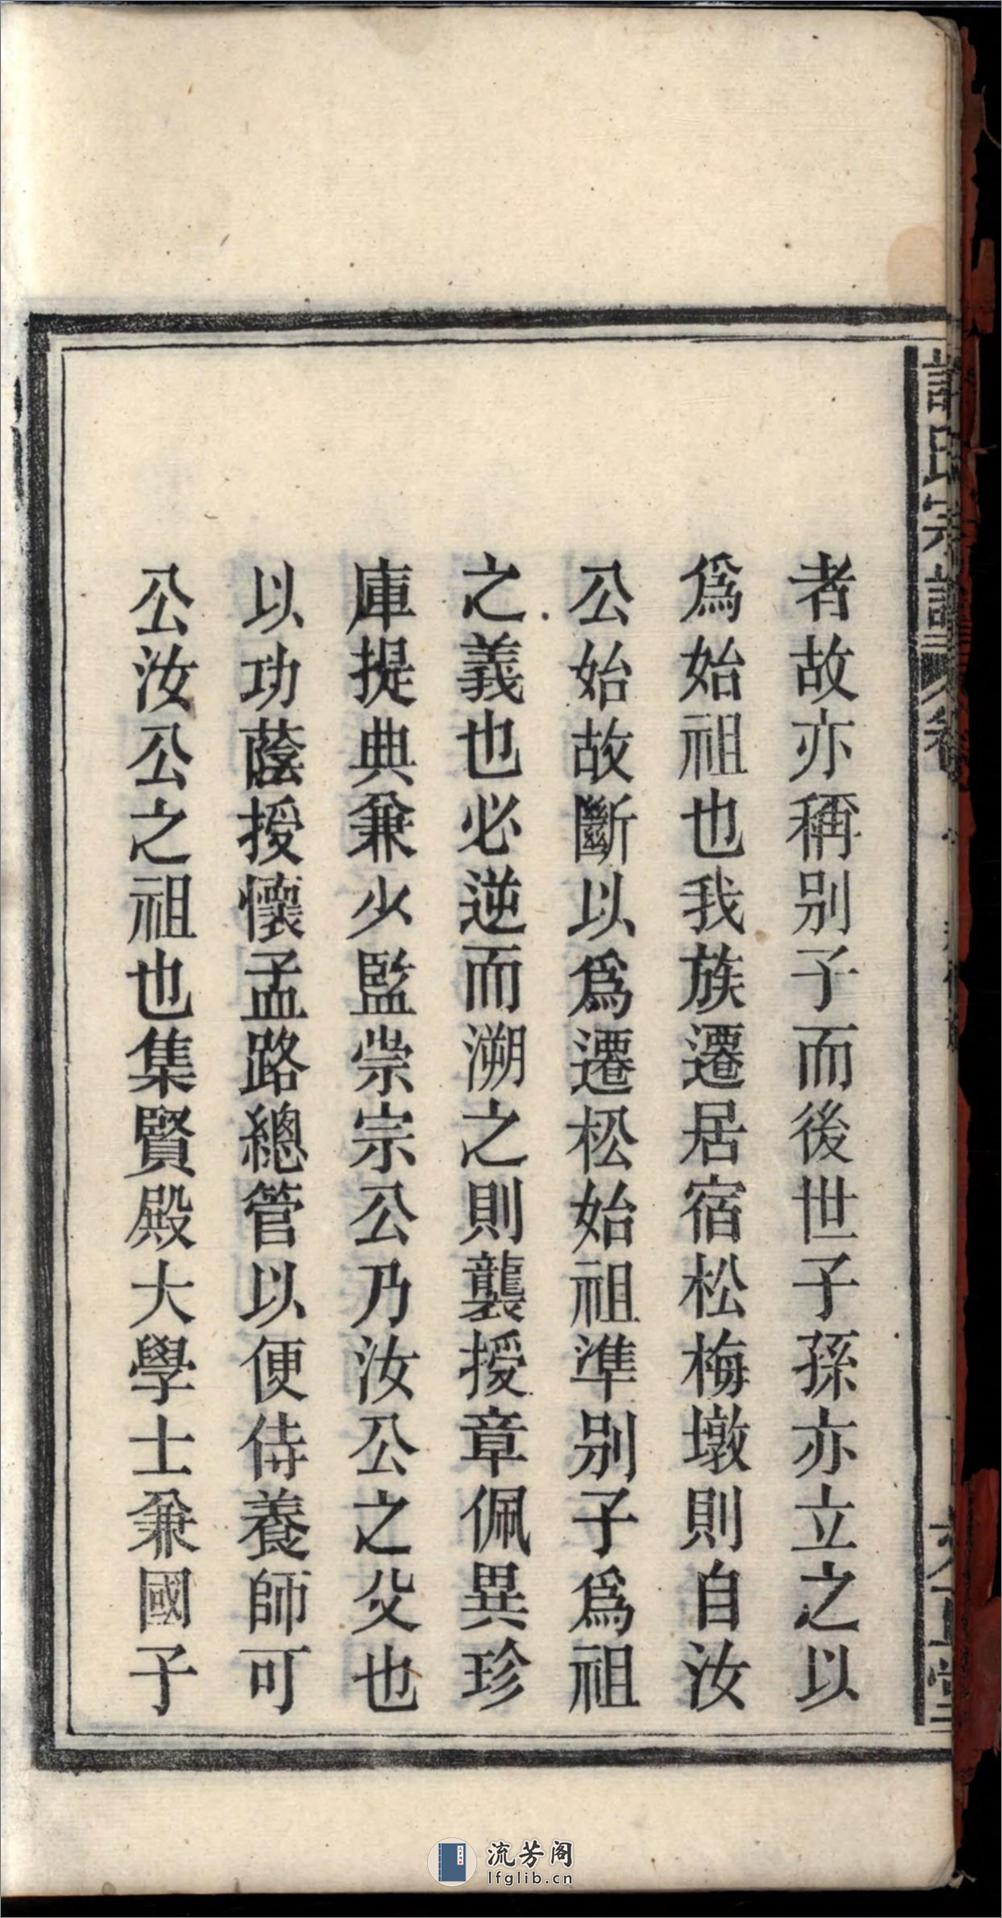 者故亦稱别子而後世子孫亦立之以
爲始祖也我族遷居宿松梅墩則自汝
公始故斷以爲遷松始祖準别子爲祖
之義也必逆而溯之則襲授章佩異珍
庫提典兼少監崇宗公乃汝公之父也
以功蔭授懷孟路總管以便侍養師可
公汝公之祖也集賢殿大學士兼國子
許氏宗譜
流芳阁
lfglib.cn